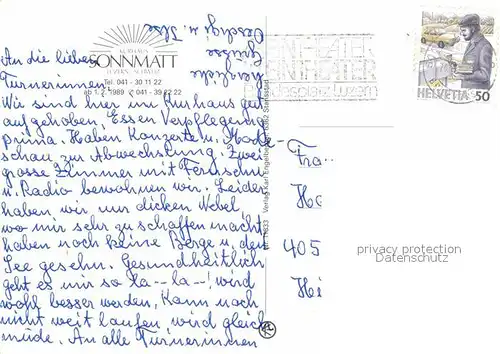 An die lieben
Turnerinnen!
Wir sind hier im Kurhaus gut
aufgehoben, Essen Verpflegung
prima. Haben Konzerte u. Mode-
schau zur Abwechslung. Zwei
grosse Zimmer mit Fernsehn
u. Radio bewohnen wir. Leider
haben wir nur dicken Nebel
wo mir sehr zu schaffen macht,
haben noch keine Berge u. den
See gesehn. Gesundheitlich
geht es mir so la--la--! wird
wohl besser werden, Kann noch
nicht weit laufen, wird gleich
müde. An alle Turnerinnen
herzliche
Grüsse
u. Ilse
KURHAUS
SONNMATT
LUZERN SCHWEIZ
Tel. 041 - 30 11 22
ab 1. 2. 1989 ✓ 041 - 39 22 22
Verlag Karl Engelberger, 6362 Stansstad
THEATER
THEATER
Luzern
HELVETIA 50
Fra
He
405
Hi
privacy protection
Datenschutz